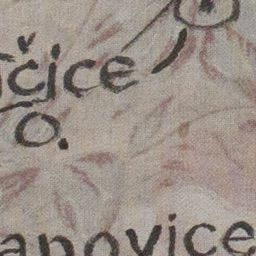 čice
o.
apovice